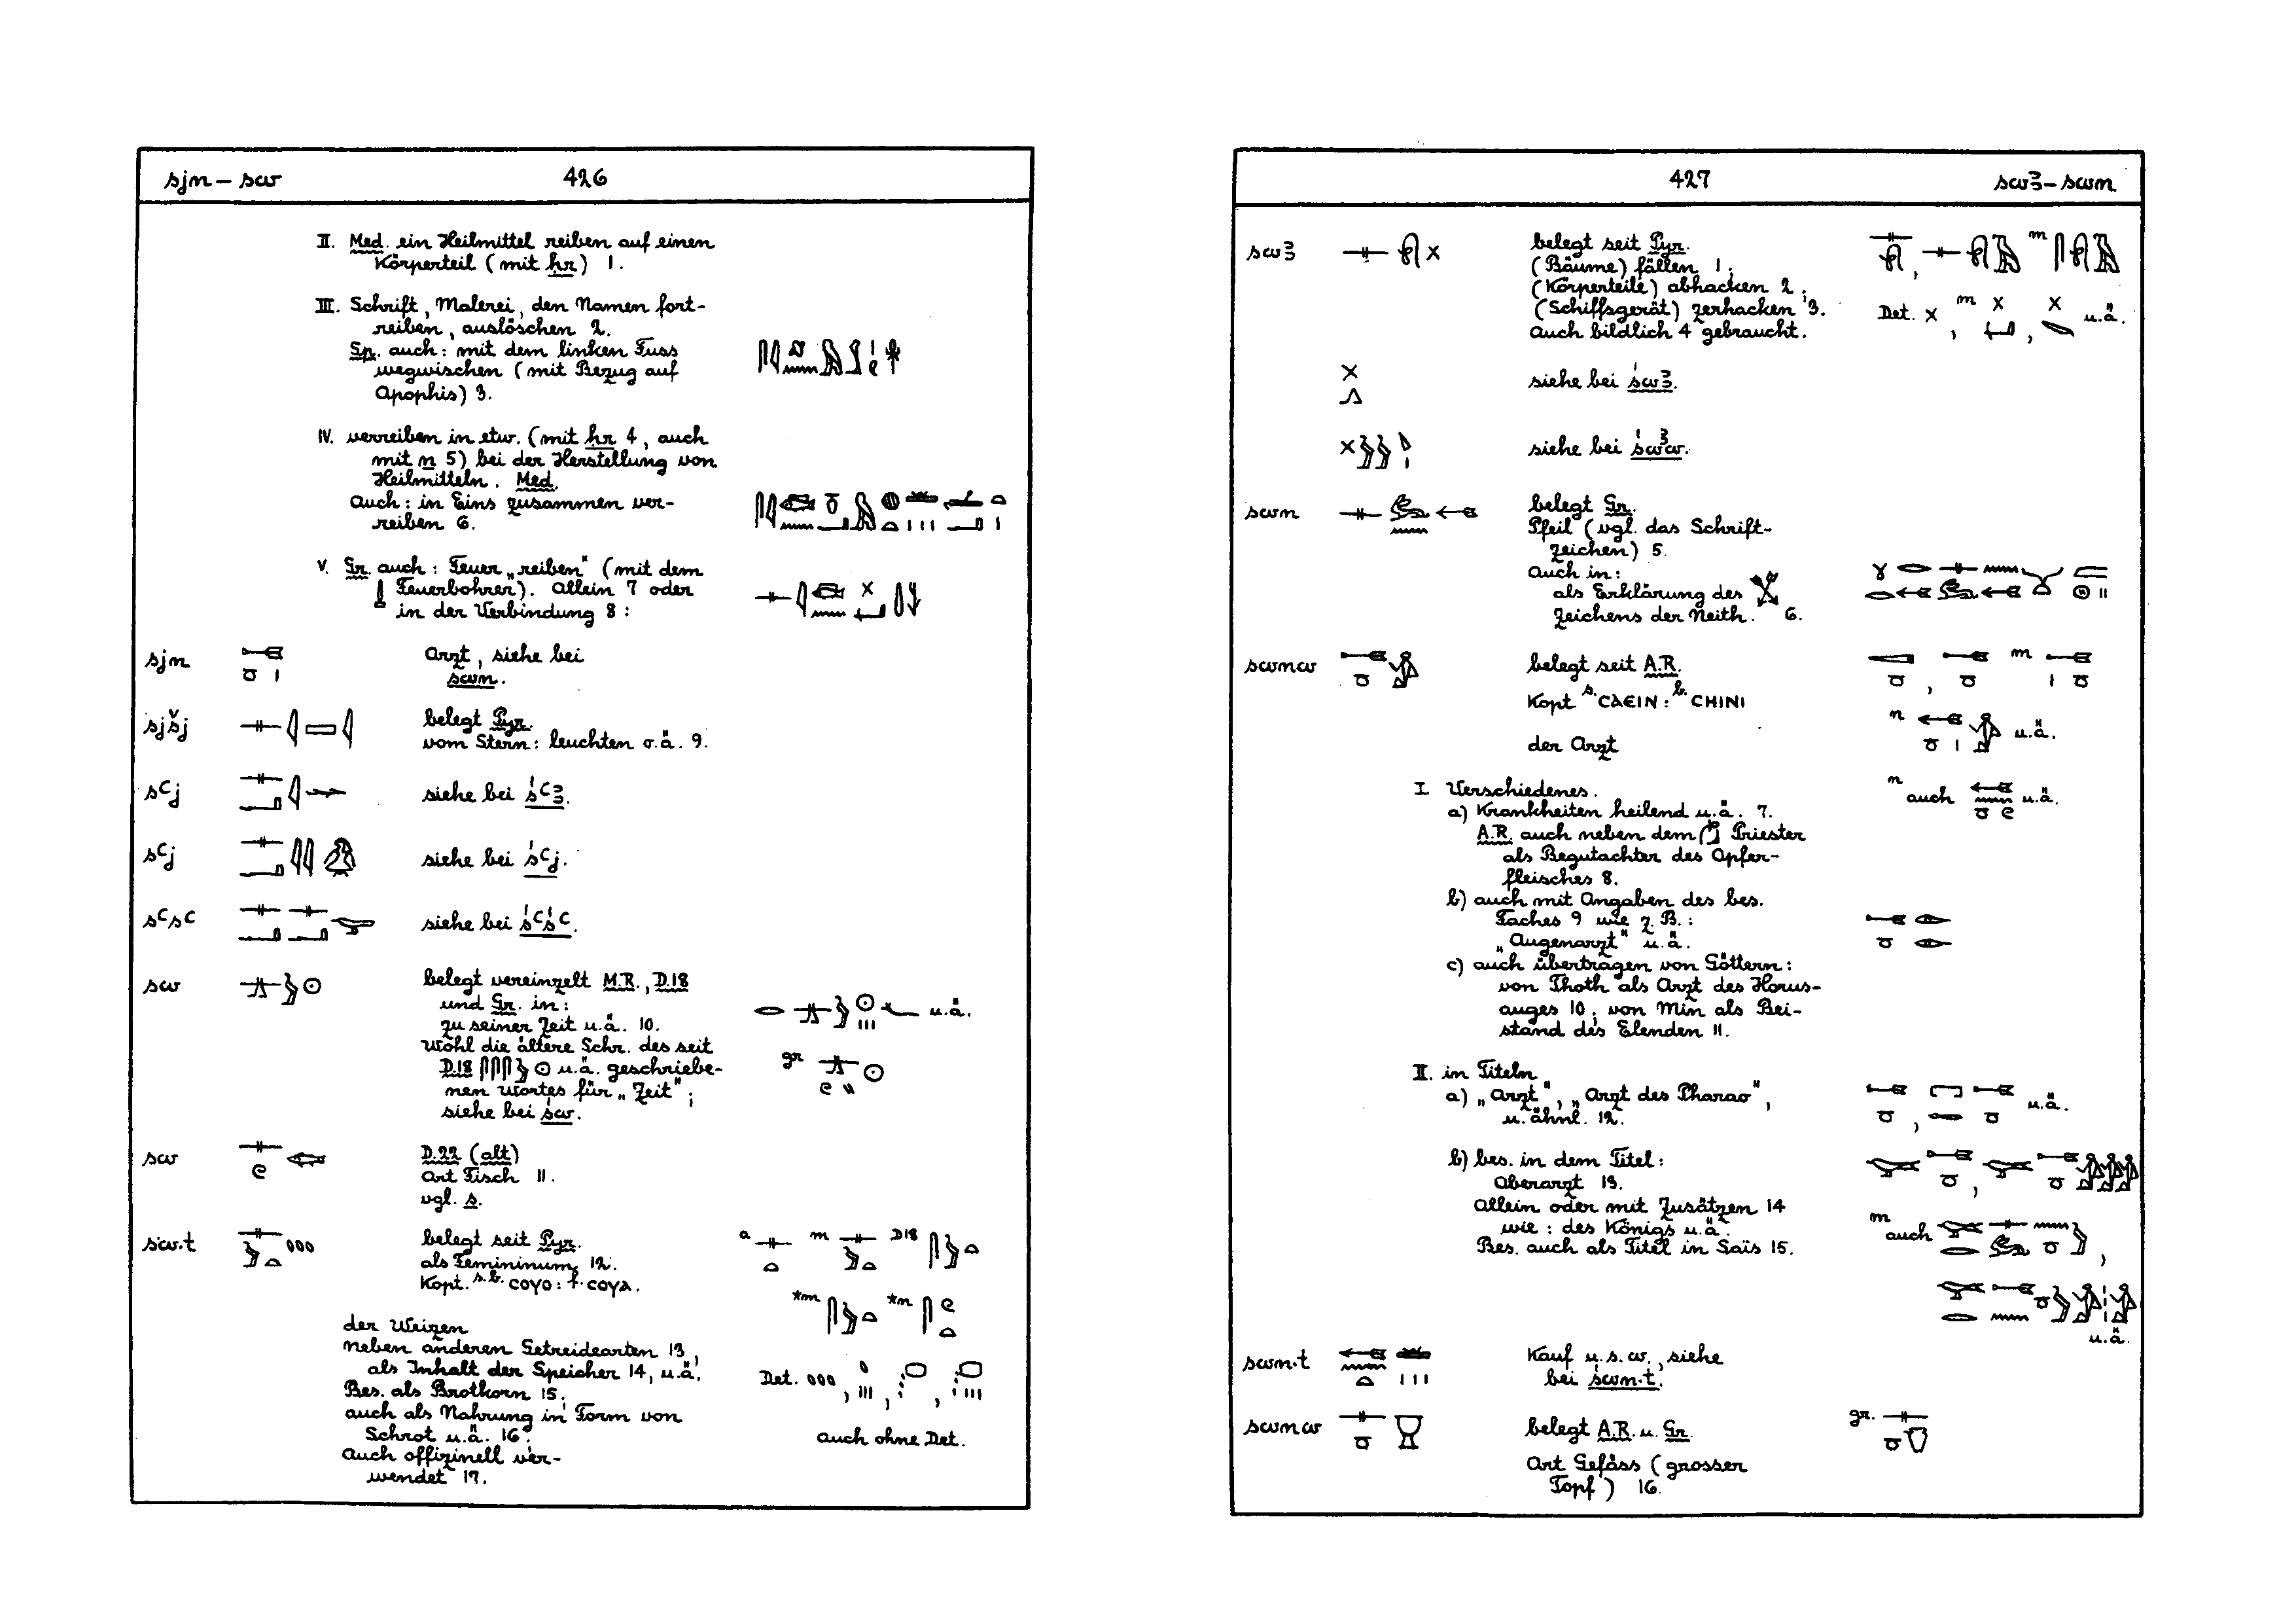 sjn – sw 426
II. Med. ein Heilmittel reiben auf einen
Körperteil (mit ḥr) 1.
III. Schrift, Malerei, den Namen fort-
reiben, auslöschen 2.
Sp. auch: mit dem linken Fuss
wegwischen (mit Bezug auf
Apophis) 3.
IV. verreiben in etw. (mit ḥr 4, auch
mit n 5) bei der Herstellung von
Heilmitteln. Med.
Auch: in Eins zusammen ver-
reiben 6.
V. Gr. auch: Feuer „reiben" (mit dem
Feuerbohrer). Allein 7 oder
in der Verbindung 8:
sjn Arzt, siehe bei
swn.
sjšj belegt Pyr.
vom Stern: leuchten o.ä. 9.
sꜥj siehe bei śꜥꜣ.
sꜥj siehe bei śꜥj.
sꜥsꜥ siehe bei śꜥśꜥ.
sw belegt vereinzelt M.R., D.18
und Gr. in:
zu seiner Zeit u.ä. 10. u.ä.
Wohl die ältere Schr. des seit
D.18 u.ä. geschriebe- gr
nen Wortes für „Zeit";
siehe bei św.
sw D.22 (alt)
Art Fisch 11.
vgl. s.
sw.t belegt seit Pyr. a m D18
als Femininum 12.
Kopt. s.b. ⲥⲟⲩⲟ: f. ⲥⲟⲩⲁ.
*m *n
der Weizen
neben anderen Getreidearten 13,
als Inhalt der Speicher 14, u.ä. Det. , , ,
Bes. als Brotkorn 15;
auch als Nahrung in Form von
Schrot u.ä. 16. auch ohne Det.
Auch offizinell ver-
wendet 17.
427 swꜣ – swn
swꜣ belegt seit Pyr. , m
(Bäume) fällen 1;
(Körperteile) abhacken 2;
(Schiffsgerät) zerhacken 3. Det. , m , u.ä.
Auch bildlich 4 gebraucht.
siehe bei śwꜣ.
siehe bei śwꜣw.
swn belegt Gr.
Pfeil (vgl. das Schrift-
zeichen) 5.
Auch in:
als Erklärung des
Zeichens der Neith. 6.
swnw belegt seit A.R. , m
Kopt. s. ⲥⲁⲉⲓⲛ: b. ⲥⲏⲓⲛⲓ
n u.ä.
der Arzt
I. Verschiedenes.
n auch u.ä.
a) Krankheiten heilend u.ä. 7.
A.R. auch neben dem Priester
als Begutachter des Opfer-
fleisches 8.
b) auch mit Angaben des bes.
Faches 9 wie z.B.:
„Augenarzt" u.ä.
c) auch übertragen von Göttern:
von Thoth als Arzt des Horus-
auges 10, von Min als Bei-
stand des Elenden 11.
II. in Titeln
a) „Arzt", „Arzt des Pharao", , u.ä.
u. ähnl. 12.
b) bes. in dem Titel: ,
Oberarzt 13.
Allein oder mit Zusätzen 14
wie: des Königs u.ä. m auch ,
Bes. auch als Titel in Sais 15.
u.ä.
swn.t Kauf u.s.w., siehe
bei śwn.t.
swnw belegt A.R. u. Gr. gr.
Art Gefäss (grosser
Topf) 16.